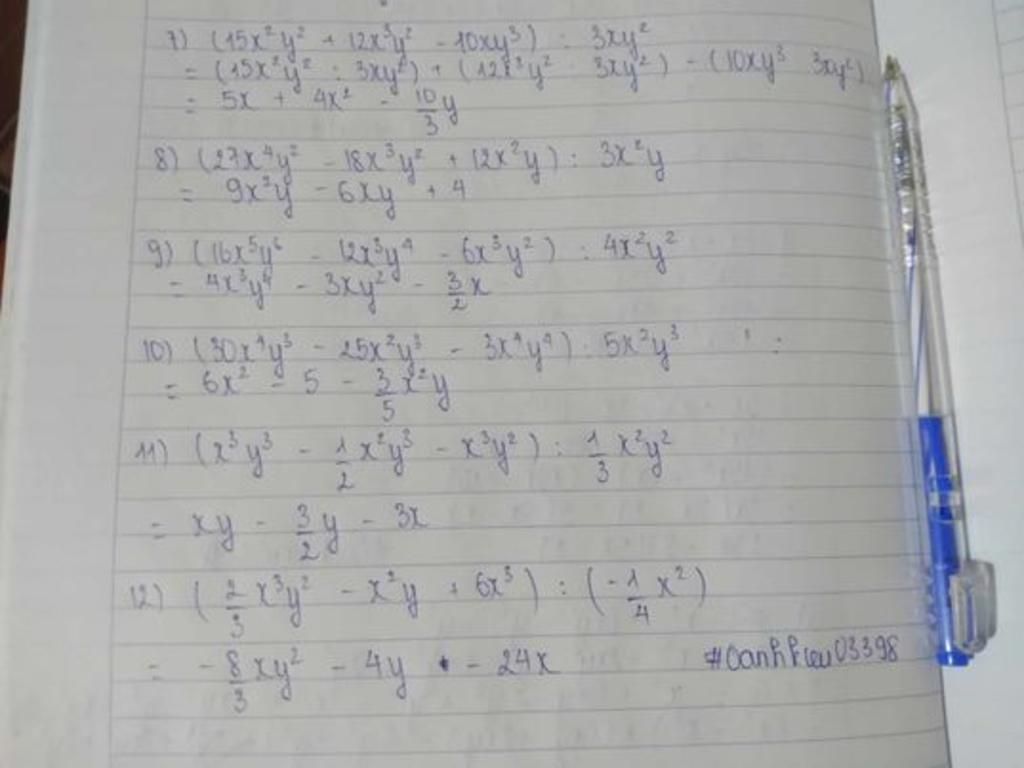 7) (15x²y² + 12x³y² - 10xy³) : 3xy²
= (15x²y² : 3xy²) + (12x³y² : 3xy²) - (10xy³ 3xy²)
= 5x + 4x² - 10/3 y
8) (27x⁴y² - 18x³y² + 12x²y) : 3x²y
= 9x²y - 6xy + 4
9) (16x⁵y⁶ - 12x³y⁴ - 6x³y²) : 4x²y²
= 4x³y⁴ - 3xy² - 3/2 x
10) (30x⁴y³ - 25x²y³ - 3x⁴y⁴) : 5x²y³ :
= 6x² - 5 - 3/5 x²y
11) (x³y³ - 1/2 x²y³ - x³y²) : 1/3 x²y²
= xy - 3/2 y - 3x
12) (2/3 x³y² - x²y + 6x³) : (-1/4 x²)
= -8/3 xy² - 4y - 24x